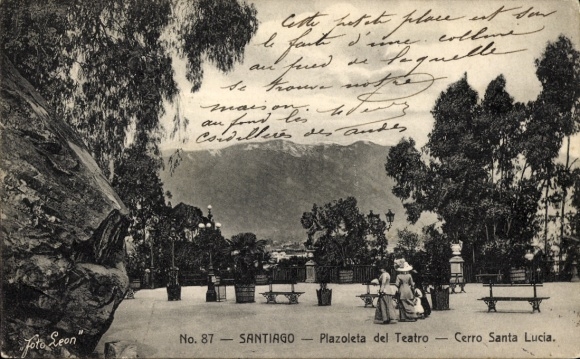 Cette petite place est sur
le faîte d'une colline
au pied de laquelle
se trouve notre
maison.
au fond les
cordillères des andes
No. 87 — SANTIAGO — Plazoleta del Teatro — Cerro Santa Lucia.
Foto Leon"